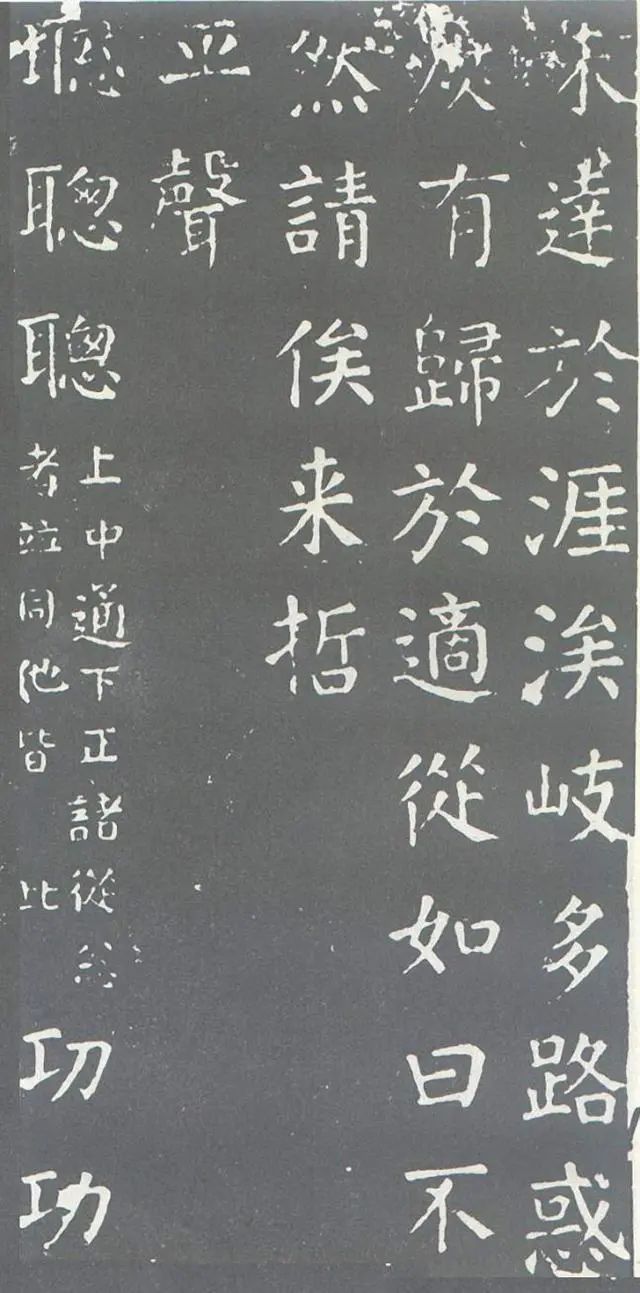 未達於涯涘岐多路惑
庶有歸於適從如曰不
然請俟来哲
平聲
聰聰上中通下正諸從
者竝同他皆比
㓛功